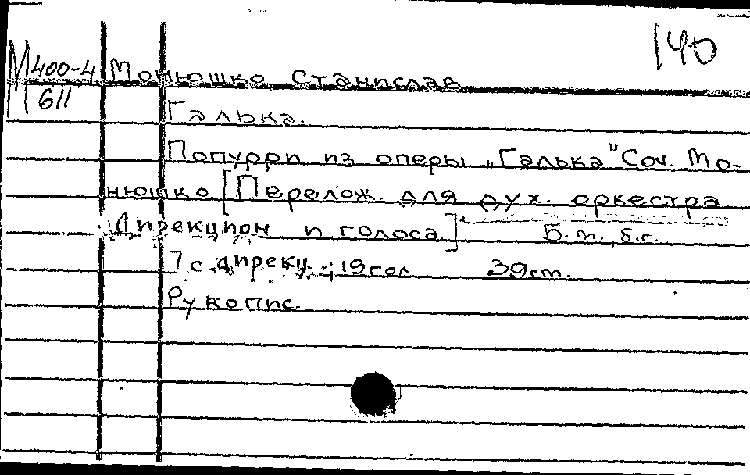 140
М400-4 Монюшко Станислав
611
Галька.
Попурри из оперы „Галька" Соч. Мо-
нюшко [Перелож. для дух. оркестра
Дирекцион и голоса] Б.м., б.г.
7 с. дирекц.; 19 гол 39 ст.
Рукопис.